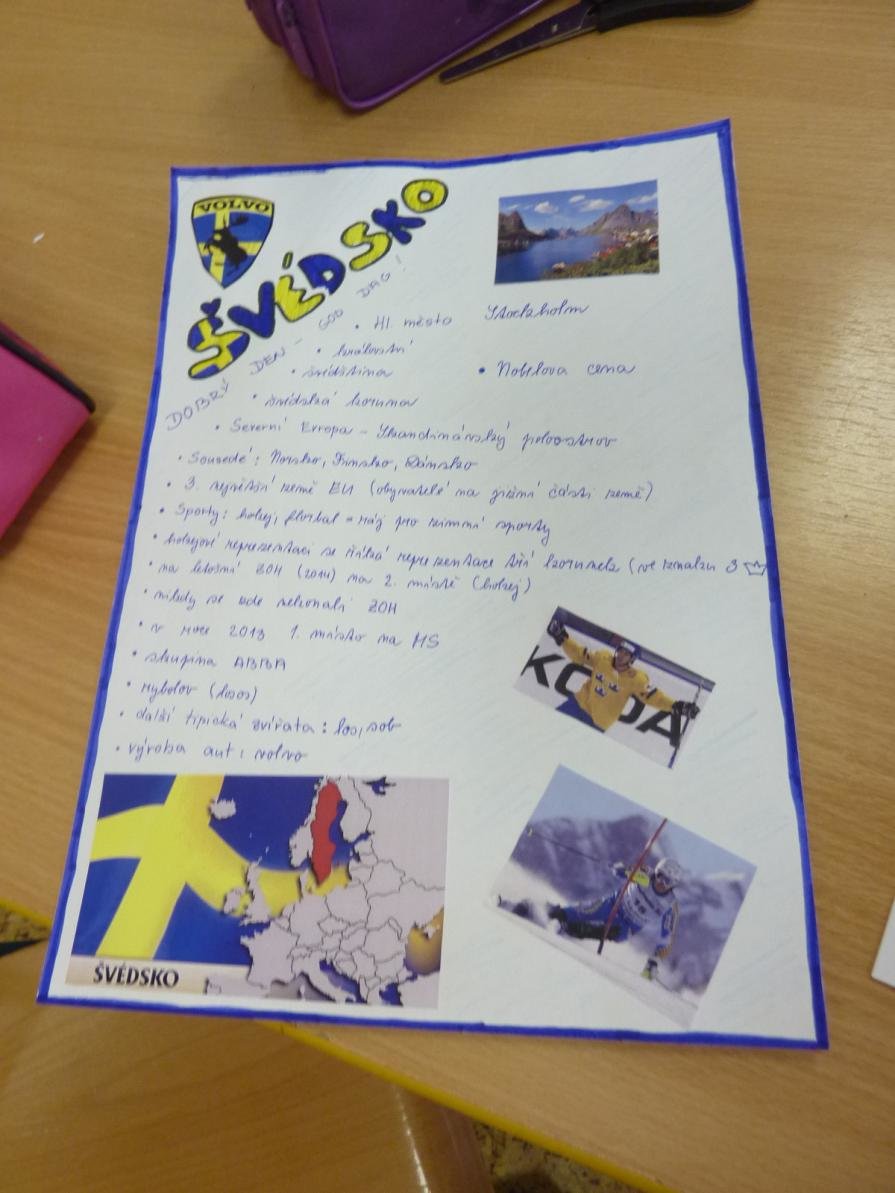 VOLVO
ŠVÉDSKO
DOBRÝ DEN - GOD DAG!
• Hl. město Stockholm
• království
• švédština
• Nobelova cena
• švédská koruna
• Severní Evropa - Skandinávský poloostrov
• Sousedé: Norsko, Finsko, Dánsko
• 3. největší země EU (obyvatelé na jižní části země)
• Sporty: hokej, florbal = ráj pro zimní sporty
• hokejové reprezentaci se říká reprezentace tří korunek (ve znaku 3
• na letošní ZOH (2014) na 2. místě (hokej)
• nikdy se zde nekonali ZOH
• v roce 2013 1. místo na MS
• skupina ABBA
• rybolov (losos)
• další tipická zvířata: los, sob
• výroba aut: volvo
KODA
ŠVÉDSKO